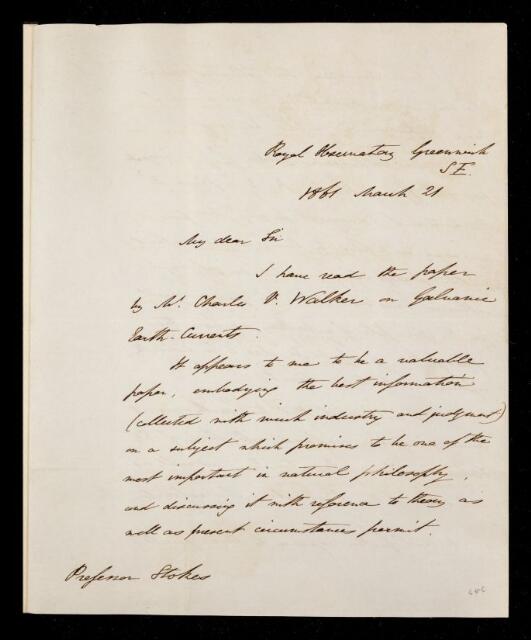 Royal Observatory Greenwich
S.E.
1861 March 21
My dear Sir
I have read the paper
by Mr. Charles V. Walker on Galvanic
Earth-Currents.
It appears to me to be a valuable
paper, embodying the best information
(collected with much industry and judgment)
on a subject which promises to be one of the
most important in natural philosophy,
and discussing it with reference to theory as
well as present circumstances permit.
Professor Stokes